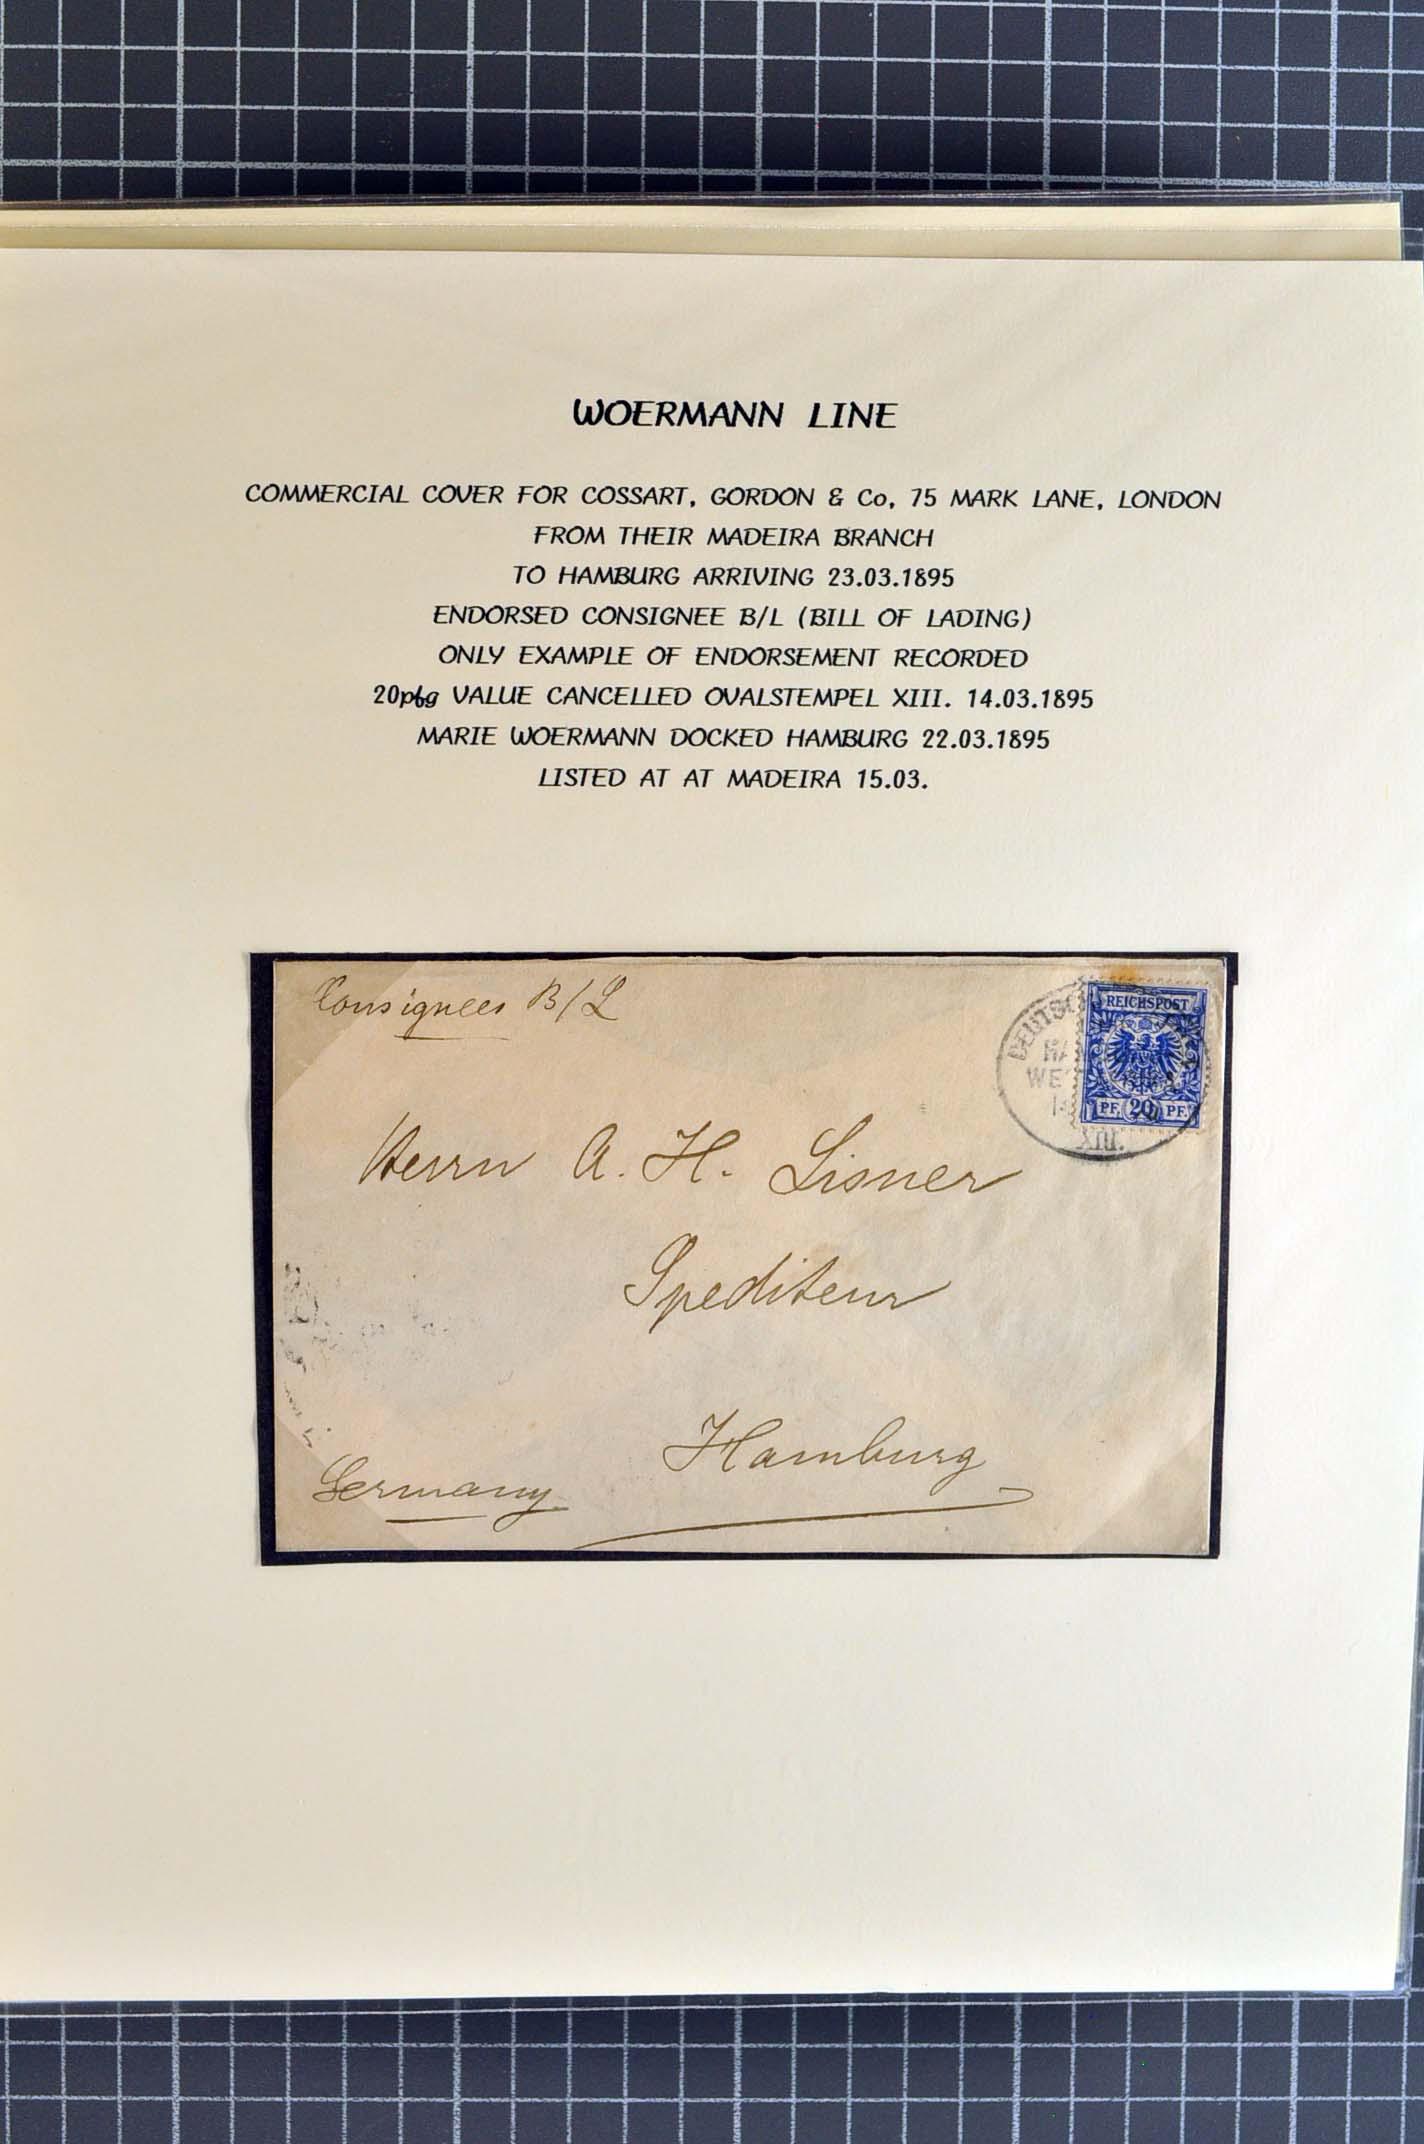 WOERMANN LINE
COMMERCIAL COVER FOR COSSART, GORDON & Co, 75 MARK LANE, LONDON
FROM THEIR MADEIRA BRANCH
TO HAMBURG ARRIVING 23.03.1895
ENDORSED CONSIGNEE B/L (BILL OF LADING)
ONLY EXAMPLE OF ENDORSEMENT RECORDED
20pfg VALUE CANCELLED OVALSTEMPEL XIII. 14.03.1895
MARIE WOERMANN DOCKED HAMBURG 22.03.1895
LISTED AT AT MADEIRA 15.03.
Consignees B/L
REICHSPOST
PF. 20 PF.
XIII.
Herrn A. H. Lisner
Spediteur
Hamburg
Germany